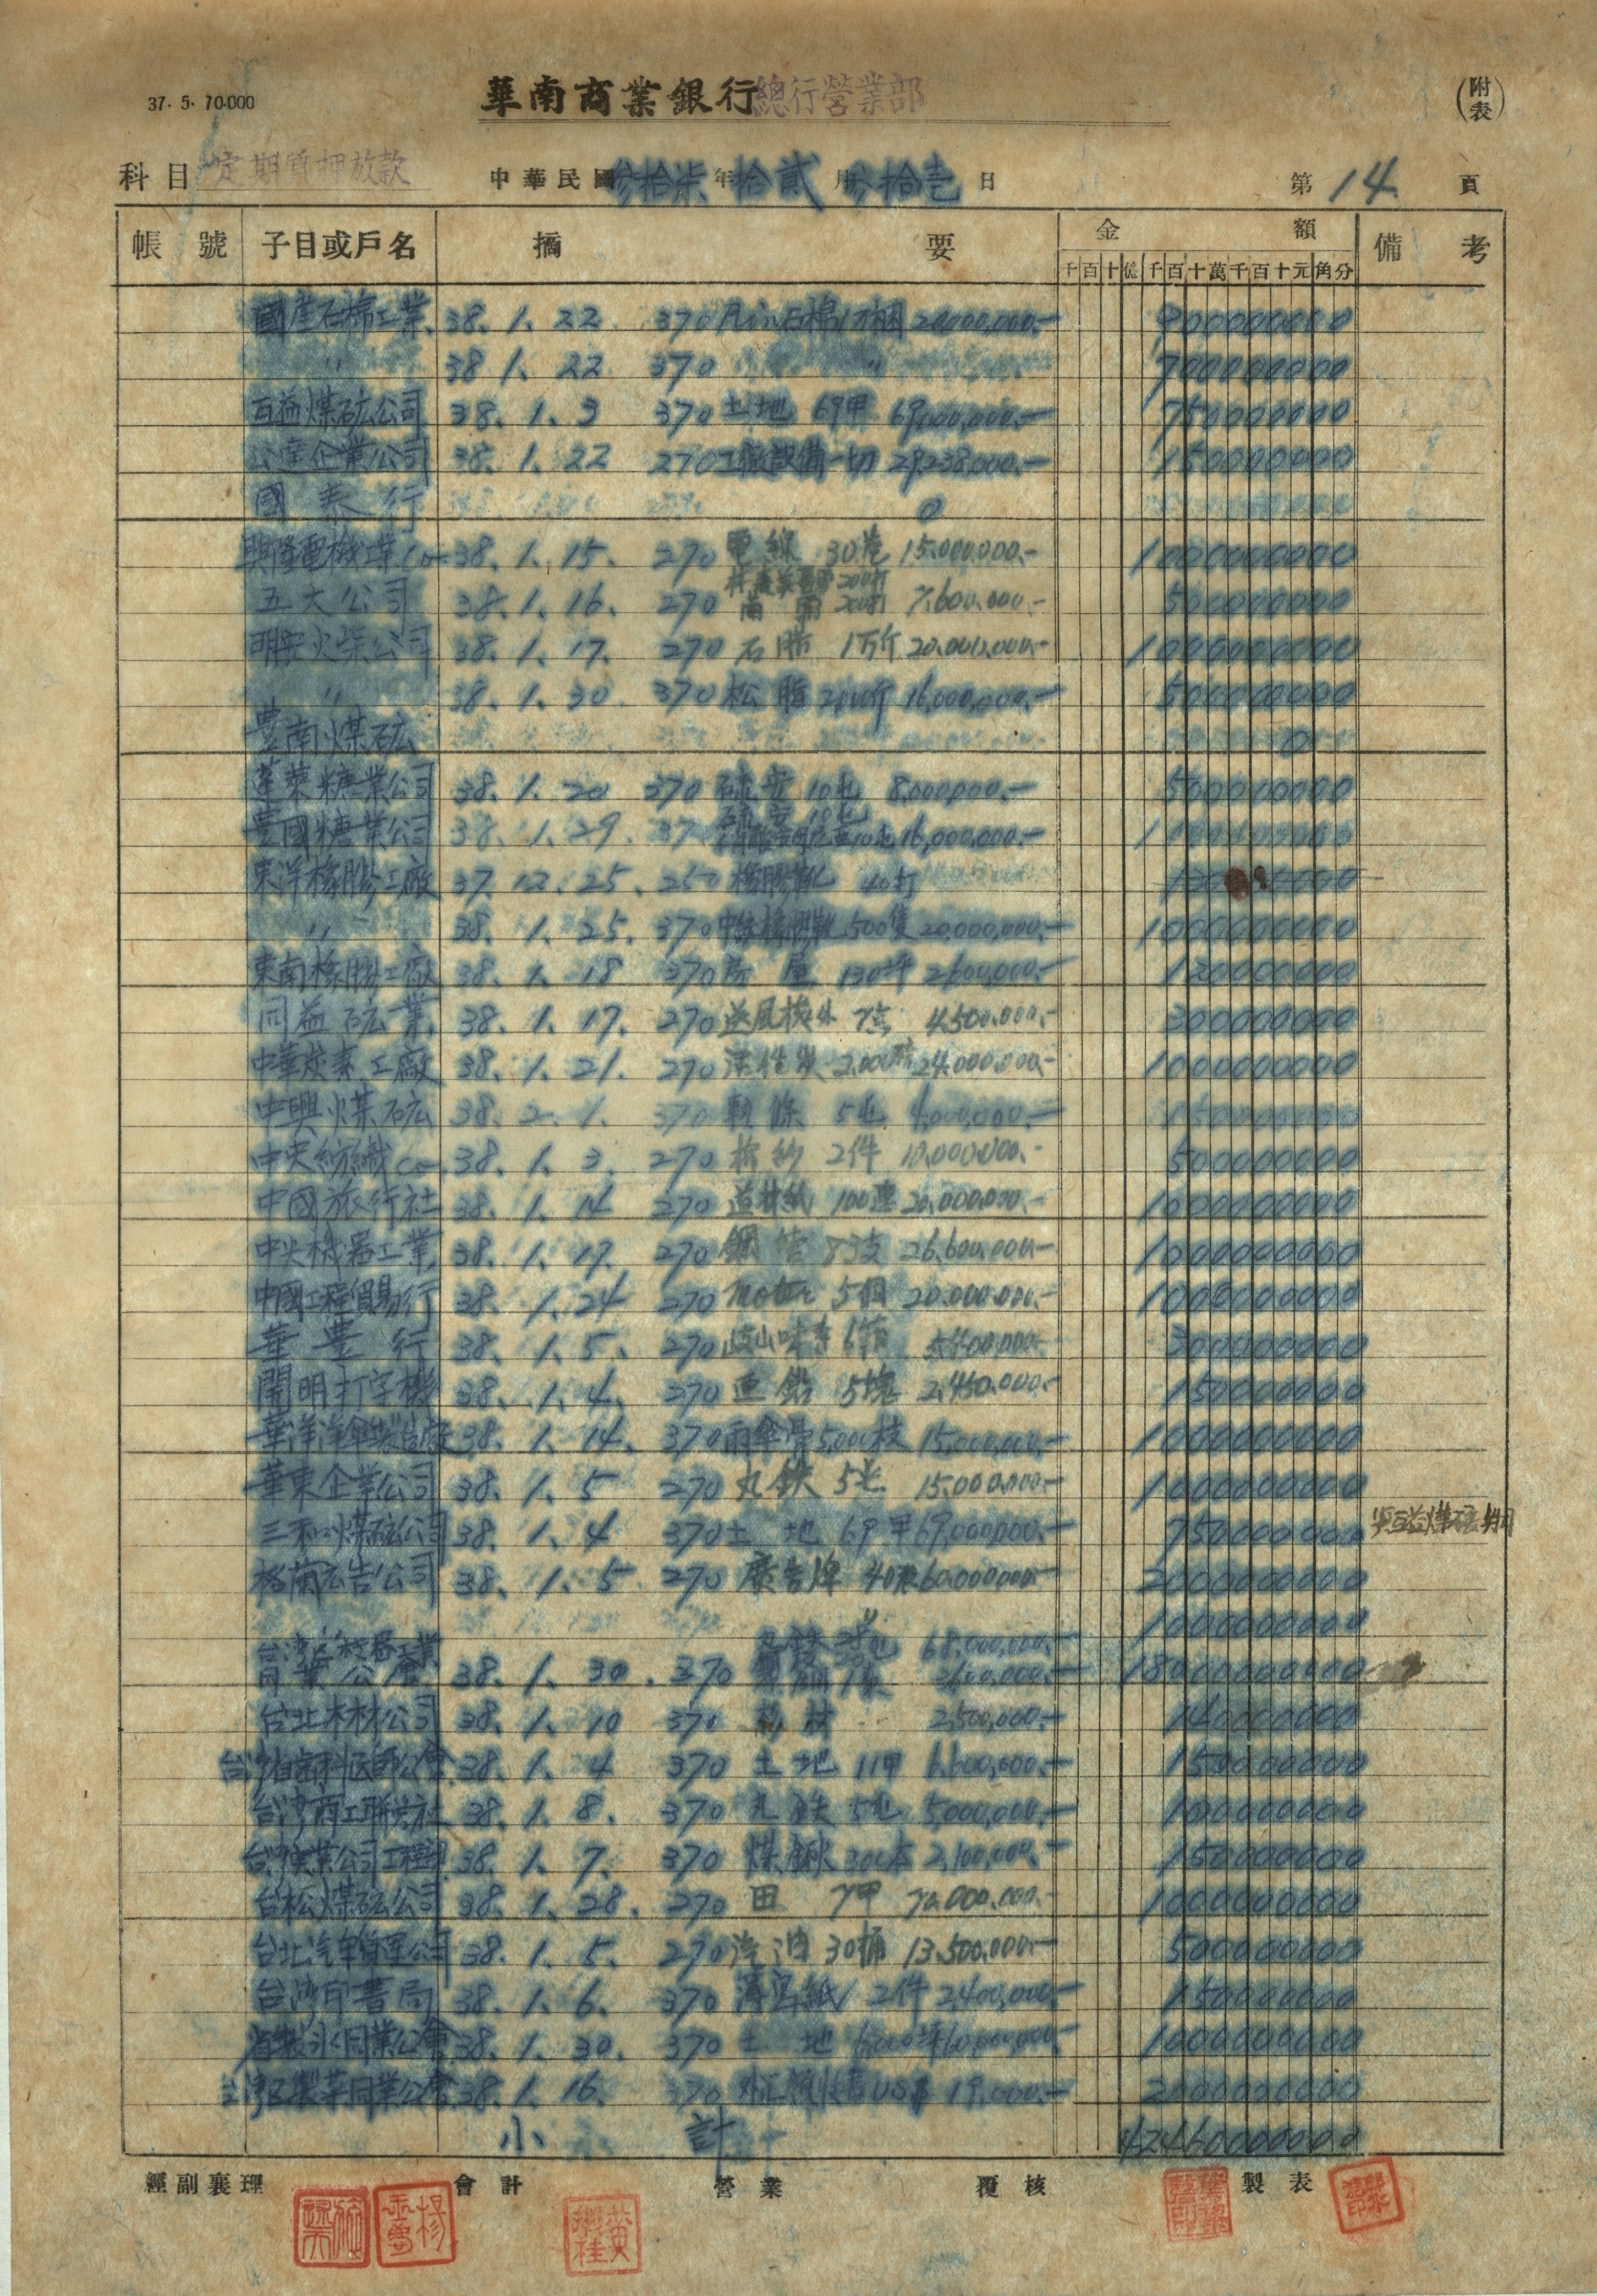 37. 5. 70.000
華南商業銀行總行營業部
(附表)
科目 定期質押放款 中華民國參拾柒年拾貳月參拾壹日 第14頁
帳號 子目或戶名 摘要 金額 備考
千百十億千百十萬千百十元角分
國產石棉工業 38. 1. 22 370 石棉 20,000,000.-
〃 38 1. 22 370 〃 700000000
互益煤礦公司 38. 1. 3 370 土地 69甲 69,000,000.- 750000000
企業公司 38. 1. 22 270 工廠設備一切 29,238,000.- 150000000
國泰行 0
興隆電機工業Co 38. 1. 15. 270 電線 30卷 15.000.000.- 1000000000
五大公司 38. 1. 16. 270 7.600.000.- 500000000
明安火柴公司 38. 1. 17. 270 石脂 1万斤 20.000.000.- 1000000000
〃 38. 1. 30. 370 松脂 16,000,000.- 500000000
豐南煤礦 0
蓬萊糖業公司 38. 1. 20 370 硫安 10屯 8,000,000.- 500000000
豐國糖業公司 38. 1. 29. 37 硫安 10屯 16,000,000.-
東洋橡膠工廠 37. 12. 25. 250 橡膠靴 40打
〃 38. 1. 25. 370 500隻 20,000,000.- 1000000000
東南橡膠工廠 38. 1. 18 370 房屋 130坪 2,600,000.- 120000000
同益礦業 38. 1. 17. 270 送風機外 7点 4.500.000.- 300000000
中華炭素工廠 38. 1. 21. 270 活性炭 2.000磅 24.000.000.- 1000000000
中興煤礦 38. 2. 1. 370 軌條 5屯 4,000,000.-
中央紡織Co. 38. 1. 3. 270 棉紗 2件 10.000.000.- 500000000
中國旅行社 38. 1. 14 270 道林紙 100連 20,000,000.- 1000000000
中央機器工業 38. 1. 17. 270 鋼管 83支 26.600.000.- 1000000000
中國工程貿易行 38. 1. 24 270 5個 20.000.000.- 1000000000
華豐行 38. 1. 5. 270 味素 6箱 5.400.000.- 300000000
開明打字機 38. 1. 4. 270 亜鉛 5塊 2.450.000.- 150000000
華洋洋傘製造廠 38. 1. 14. 370 雨傘骨 5,000枝 15,000,000.- 1000000000
華東企業公司 38. 1. 5 270 丸鉄 5屯 15.000.000.- 1000000000
三和煤礦公司 38. 1. 4 370 土地 69甲 69,000,000.- 750000000 與互益煤礦共同
格蘭广告公司 38. 1. 5. 270 廣告牌 60.000.000.- 2000000000
〃 〃 1000000000
台灣省機器工業 68,000,000.-
同業公會 38. 1. 30. 370 2,600,000.- 1800000000
台北木材公司 38. 1. 10 370 2,500,000.- 140000000
台灣省齒科医師公會 38. 1. 4 370 土地 11甲 6,600,000.- 150000000
台灣商工聯共社 38. 1. 8. 370 丸鉄 5屯 5,000,000.- 100000000
38. 1. 7. 370 煤鍬 300本 2,100,000.- 150000000
台松煤礦公司 38. 1. 28. 270 田 7甲 70.000.000.- 1000000000
台北汽車貨運公司 38. 1. 5. 270 汽油 30桶 13.500.000.- 500000000
台灣印書局 38. 1. 6. 370 薄写紙 2件 2,400,000.- 150000000
省製冰同業公會 38. 1. 30. 370 土地 6000坪 60,000,000.- 1000000000
製革同業公會 38. 1. 16. 370 US$ 19,000.- 2000000000
小計 42460000000
經副襄理 會計 營業 覆核 製表